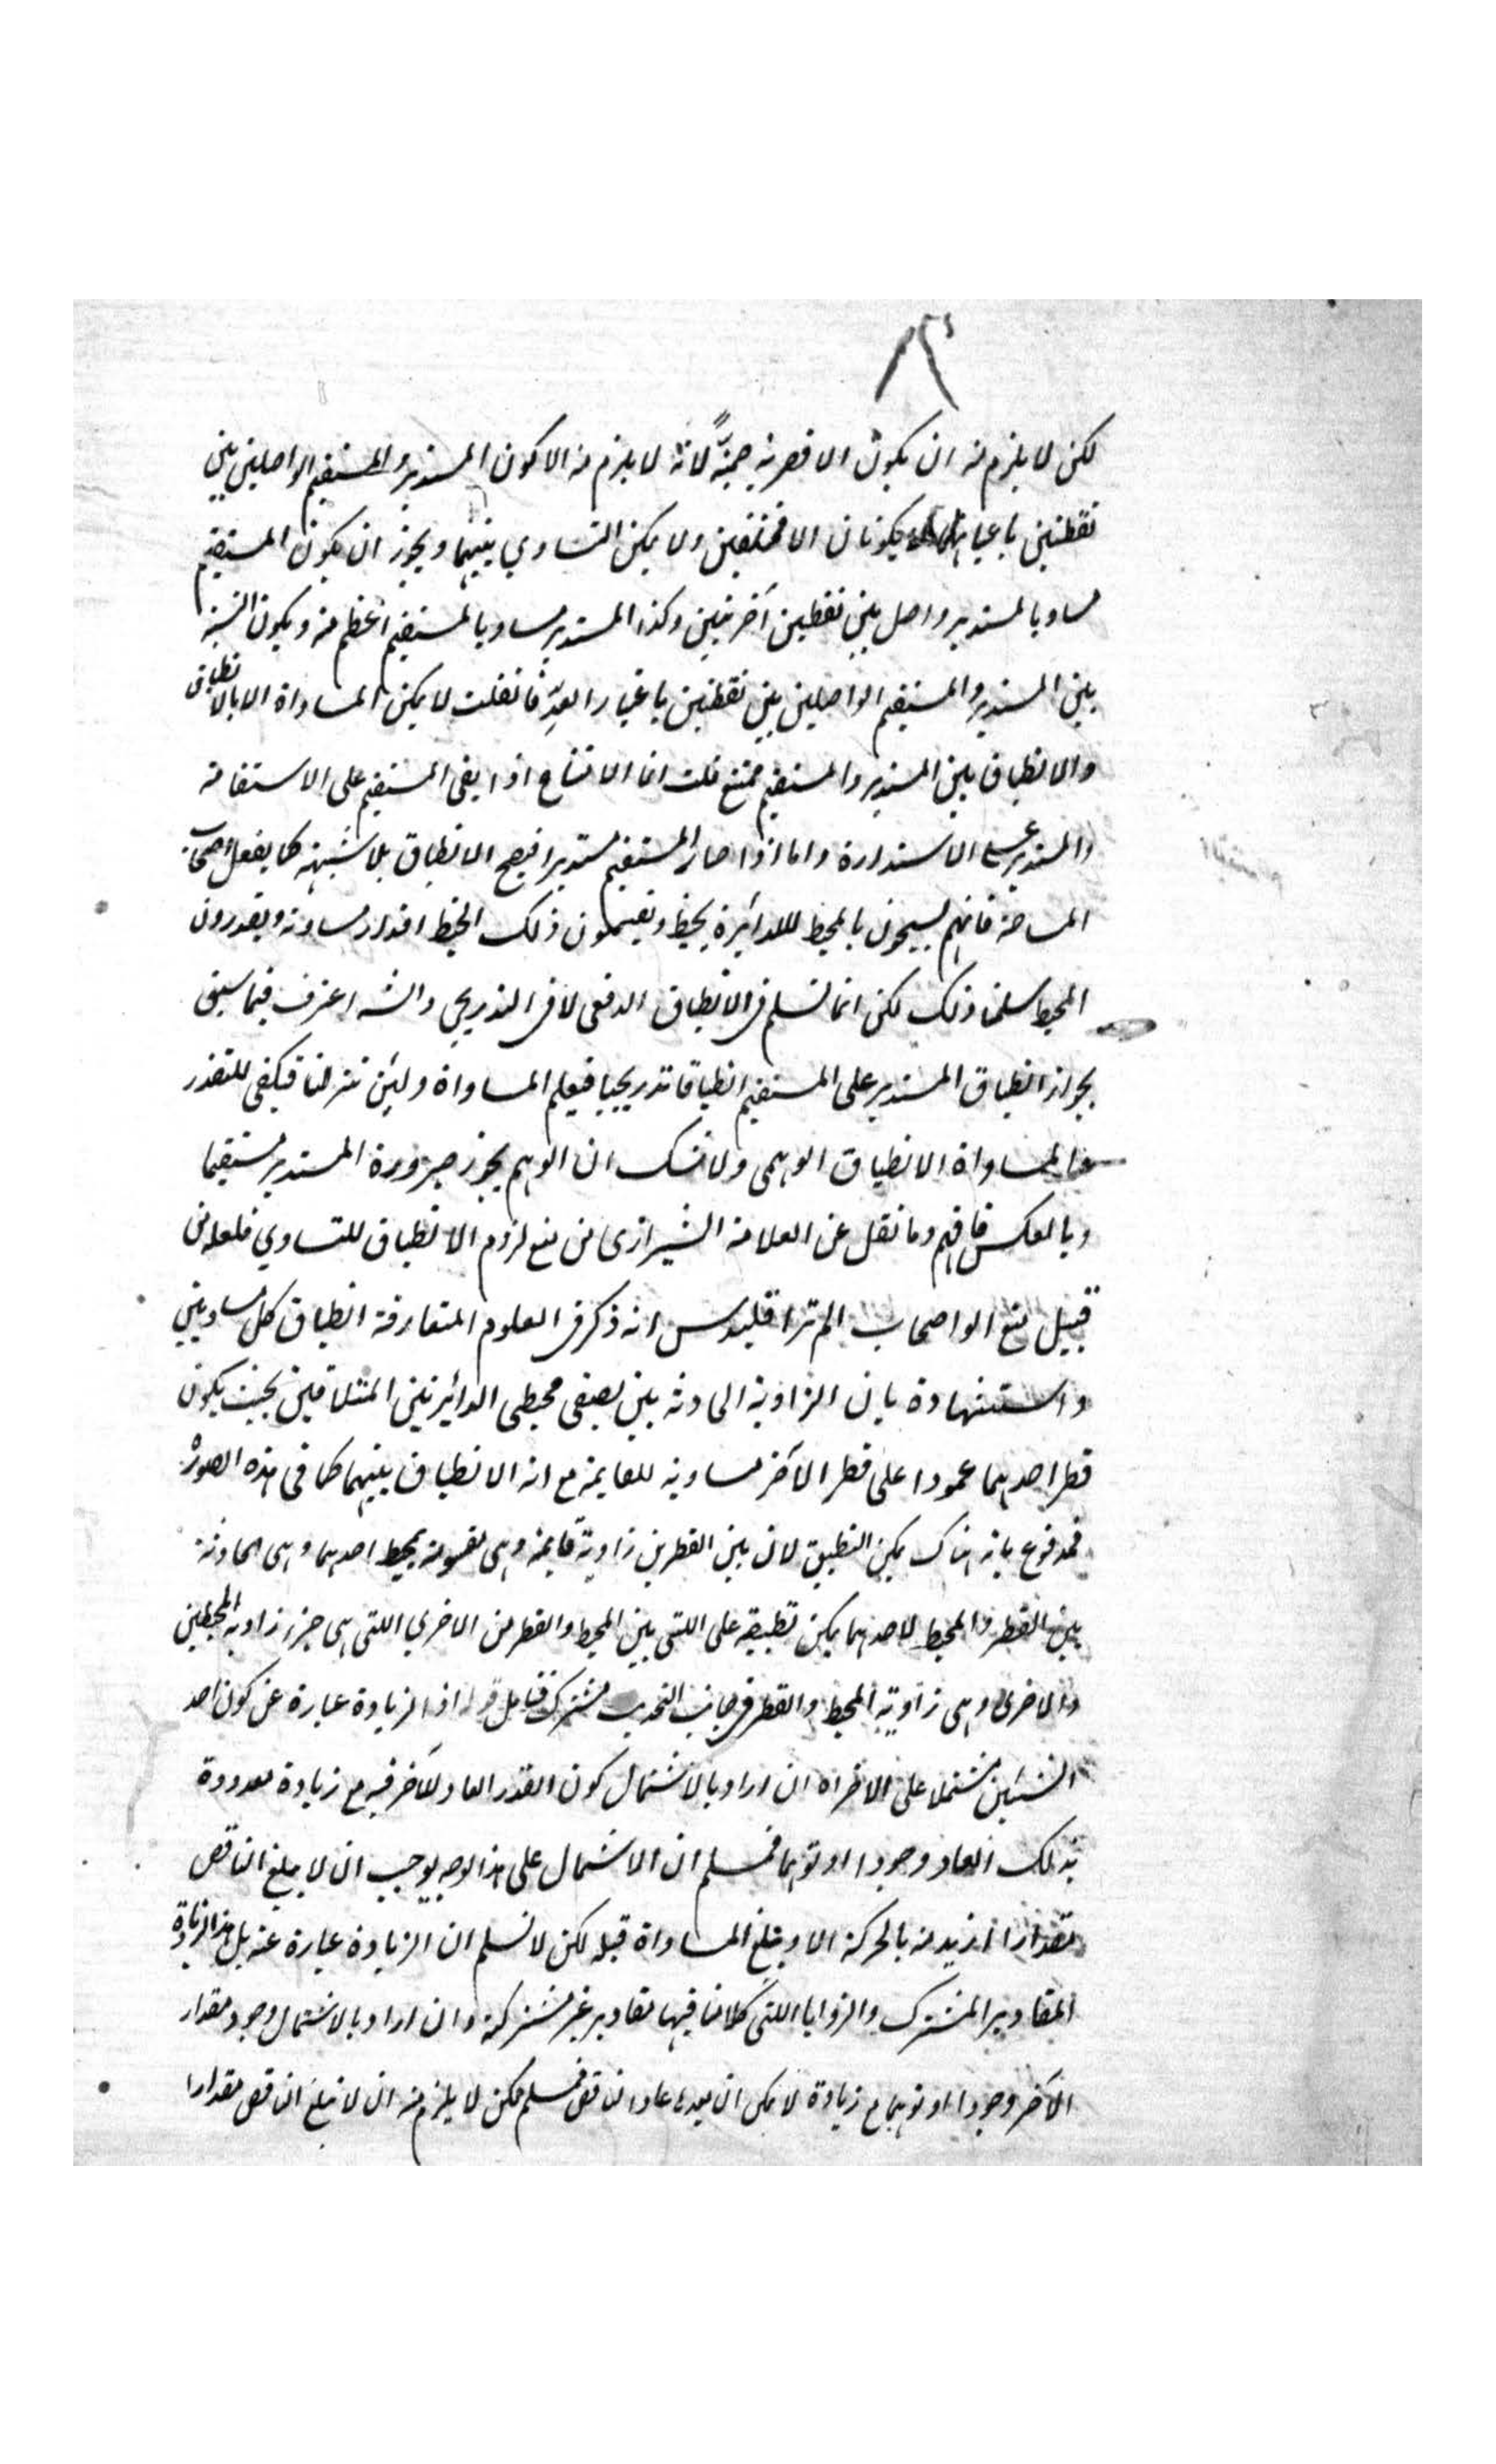 ٨٣
لكن لا يلزم منه ان يكون الاقصرية صمية لانه لا يلزم منه الا كون المستدير والمستقيم الواصلين بين
نقطتين باعيانهما لا يكونان الا مختلفين ولا يمكن التساوي بينهما ويجوز ان يكون المستقيم
مساويا لمستدير واصل بين نقطتين آخرتين وكذا المستدير مساويا لمستقيم اعظم منه ويكون النسبة
بين المستدير والمستقيم الواصلين بين نقطتين باعتبار العدّ فانقلت لا يمكن المساواة الا بالانطباق
والانطباق بين المستدير والمستقيم ممتنع قلت انما الامتناع اذا بقى المستقيم على الاستقامة
والمستدير على الاستدارة واما اذا صار المستقيم مستديرا فيصح الانطباق بلا شبهة كما يفعل اصحاب
المساحة فانهم يسيحون بالمحيط للدائرة بخيط ويقسمون ذلك الخيط اقدارا مساوية ويقدرون
المحيط سلمنا ذلك لكن انما نسلم في الانطباق الدفعى لا في التدريجي والشه اعترف فيما سبق
بجواز انطباق المستدير على المستقيم انطباقا تدريجيا فيعلم المساواة ولئن تنزلنا فيكفى للتقدر
والمساواة الانطباق الوهمى ولا شك ان الوهم يجوز صيرورة المستدير مستقيما
وبالعكس فافهم وما نقل عن العلامة الشيرازى من منع لزوم الانطباق للتساوي فلعله من
قبيل منع الواضحات الم تر اقليدس انه ذكر في العلوم المتعارفة انطباق كل مساويين
واستشهاده بان الزاوية الحادثة بين نصفى محيطى الدائرتين المتلاقين بحيث يكون
قطر احدهما عمودا على قطر الآخر مساوية للقايمة مع انه الانطباق بينهما كما في هذه الصورة
فمدفوع بانه هناك يمكن التطبيق لان بين القطرين زاوية قايمة وهى مقسومة بمحيط احدهما وهى الحادثة
بين القطر والمحيط لاحدهما يمكن تطبيقه على اللتى بين المحيط والقطر من الاخرى اللتى هى جزء زاوية المحيطين
والاخرى وهى زاوية المحيط والقطر في جانب التحدب مشترك فتامل قوله اذ الزيادة عبارة عن كون احد
الشيئين مشتملا على الاخر اه ان اراد بالاشتمال كون القدر العاد للآخر فيه مع زيادة معدودة
بذلك العاد وجودا او توهما فمسلم ان الاشتمال على هذا الوجه يوجب ان لا يبلغ الناقص
مقدارا ازيد منه بالحركة الا ويبلغ المساواة قبله لكن لا نسلم ان الزيادة عبارة عنه بل هذا زيادة
المقادير المشترك والزوايا اللتى كلامنا فيها مقادير غير مشتركة وان اراد بالاشتمال وجود مقدار
الآخر وجودا او توهما مع زيادة لا يمكن ان يعده عاد الناقص فمسلم لكن لا يلزم منه ان لا تبلغ الناقص مقدارا